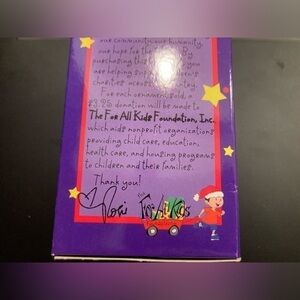 our community, our humanity,
our hope for the By
purchasing this you
are helping support children's
charities across
For each ornament sold, a
$3.25 donation will be made to
The For All Kids Foundation, Inc.
which aids nonprofit organizations
providing child care, education,
health care, and housing programs
to children and their families.
Thank you!
Rosie For All Kids